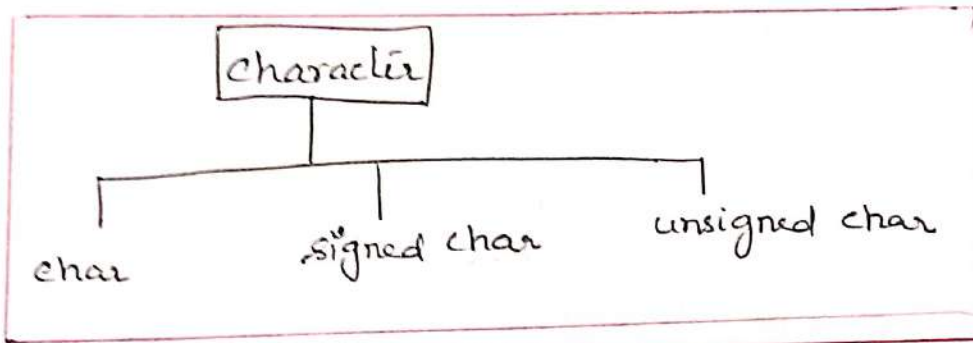 character
char
signed char
unsigned char